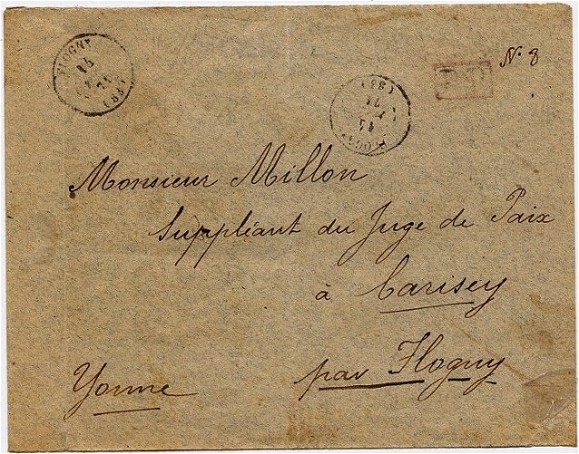 FLOGNY
15
71
(83)
(83)
71
15
FLOGNY
N. 8
P.P.
Monsieur Millon
Suppliant du Juge de Paix
à Carisey
par Flogny
Yonne